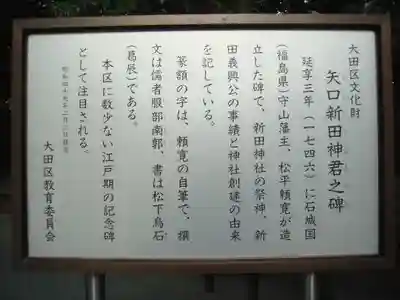 大田区文化財
矢口新田神君之碑
延享三年(一七四六)に石城国
(福島県)守山藩主、松平頼寛が造
立した碑で、新田神社の祭神、新
田義興公の事績と神社創建の由来
を記している。
篆額の字は、頼寛の自筆で、撰
文は儒者服部南郭、書は松下烏石
(葛辰)である。
本区に数少ない江戸期の記念碑
として注目される。
大田区教育委員会